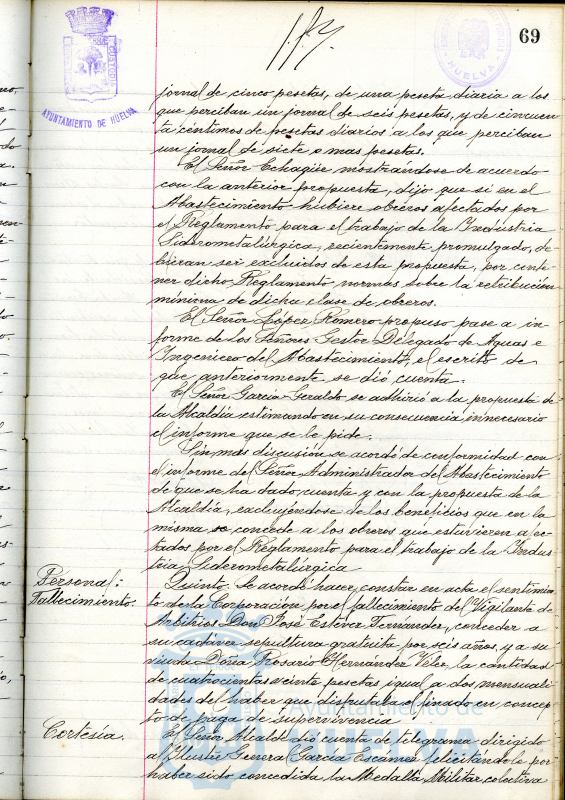 69
AYUNTAMIENTO DE HUELVA
HUELVA
jornal de cinco pesetas, de una peseta diaria a los
que perciban un jornal de seis pesetas, y de cincuen
ta céntimos de pesetas diarios a los que perciban
un jornal de siete o mas pesetas.
El Señor Echagüe mostrándose de acuerdo
con la anterior propuesta, dijo que si en el
Abastecimiento hubiere obreros afectados por
el Reglamento para el trabajo de la Industria
Siderometalúrgica, recientemente promulgado, de
bieran ser excluidos de esta propuesta, por conte
ner dicho Reglamento normas sobre la retribución
mínima de dicha clase de obreros.
El Señor López Romero propuso pase a in
forme de los Señores Gestor Delegado de Aguas e
Ingeniero del Abastecimiento, el escrito de
que anteriormente se dió cuenta.
El Señor García-Geraldo se adhirió a la propuesta de
la Alcaldía estimando en su consecuencia innecesario
el informe que se le pide.
Sin mas discusión se acordó de conformidad con
el informe del Señor Administrador del Abastecimiento
de que se ha dado cuenta y con la propuesta de la
Alcaldía, excluyéndose de los beneficios que con la
misma se concede a los obreros que estuvieren afec
tados por el Reglamento para el trabajo de la Indus
tria Siderometalúrgica
Personal:
Fallecimiento.
Quinto. Se acordó hacer constar en acta el sentimien
to de la Corporación por el fallecimiento del Vigilante de
Arbitrios Don José Estévez Fernández, conceder a
su cadáver sepultura gratuita por seis años, y a su
viuda Doña Rosario Hernández Vélez, la cantidad
de cuatrocientas veinte pesetas, igual a dos mensuali
dades del haber que disfrutaba el finado en concep
to de paga de supervivencia
Cortesía.
El Señor Alcalde dió cuenta de telegrama dirigido
al Ilustre General García Escámez felicitándole por
haber sido concedida la Medalla Militar colectiva
Ayuntamiento de
HUELVA